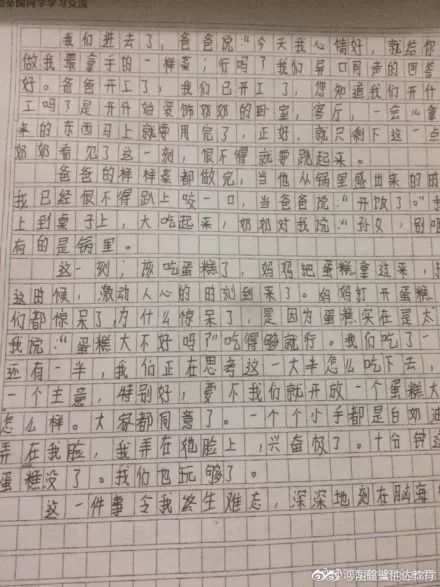 全国同学学习交流
我们进去了，爸爸说“今天我心情好，就给你
做我最拿手的一样菜；行吗？我们异口同声的回答
好。爸爸开工了，我们已开工了，您知道我们开什
工吗？是开开始装饰奶奶的卧室，客厅，一会儿拿
来的东西马上就要用完了，正好，就只剩下这一点
奶奶看见了这一刻，恨不得就要跳起来。
爸爸的样样菜都做完，当他从锅里盛出来的时
我已经恨不得趴上咬一口，当爸爸说：“开饭了。”我
上到桌子上，大吃起来，奶奶对我说：“孙女，别
有的是锅里。
这一刻；该吃蛋糕了，妈妈把蛋糕拿过来，
这时候，激动人心的时刻到来了。妈妈打开蛋糕
们都惊呆了，为什么惊呆了，是因为蛋糕实在是太
我说：“蛋糕大不好吗？”吃得够就行。我们吃了一
还有一半，我们正在思考这一大半怎么吃下去，
一个主意，特别好，要不我们就开放一个蛋糕大
怎么样。大家都同意了。一个个小手都是白奶油
弄在我脸，我弄在他脸上，兴奋极了。十分钟
蛋糕没了。我们也玩够了。
这一件事令我终生难忘，深深地刻在脑海